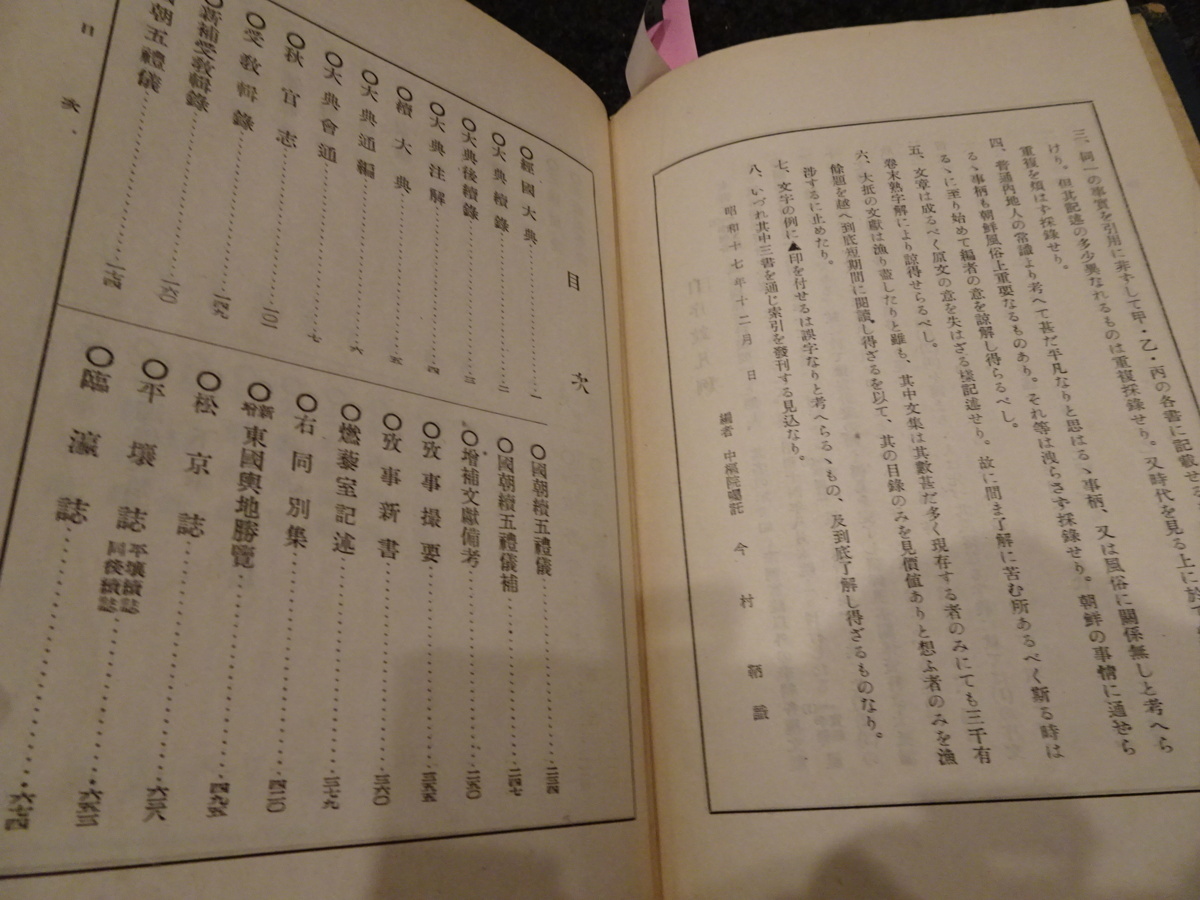 三、同一の事實を引用に非ずして甲・乙・丙の各書に記載せる
けり。但其記述の多少異なれるものは重複採錄せり。又時代を見る上に於て
重複を煩はず採錄せり。
四、普通內地人の常識より考へて甚だ平凡なりと思はるゝ事柄、又は風俗に關係無しと考へら
るゝ事柄も朝鮮風俗上重要なるものあり。それ等は洩らさず採錄せり。朝鮮の事情に通せら
るゝに至り始めて編者の意を諒解し得らるべし。
五、文章は成るべく原文の意を失はざる樣記述せり。故に間ま了解に苦む所あるべく斯る時は
卷末熟字解により諒得せらるべし。
六、大抵の文獻は漁り盡したりと雖も、其中文集は其數甚だ多く現存する者のみにても三千有
餘題を越へ到底短期間に閱讀し得ざるを以て、其の目錄のみを見價値ありと想ふ者のみを漁
涉するに止めたり。
七、文字の例に▲印を付せるは誤字なりと考へらるゝもの、及到底了解し得ざるものなり。
八、いづれ其中三書を通じ索引を發刊する見込なり。
昭和十七年十二月 日
編者 中樞院囑託 今村鞆識
目次
〇經國大典……一
〇大典續錄……二
〇大典後續錄……三
〇大典注解……四
〇續大典……五
〇大典通編……六
〇大典會通……七
〇秋官志……一〇一
〇受敎輯錄……一四九
〇新補受敎輯錄……一六〇
國朝五禮儀……一七四
〇國朝續五禮儀……二三四
〇國朝續五禮儀補……二四七
〇增補文獻備考……二五〇
〇攷事撮要……三五五
〇攷事新書……三六〇
〇燃藜室記述……三七九
〇右同別集……四二〇
〇新增東國輿地勝覽……四九五
〇松京誌……六三八
〇平壤誌 平壤續誌 同後續誌……六五三
〇臨瀛誌……六七四
目次